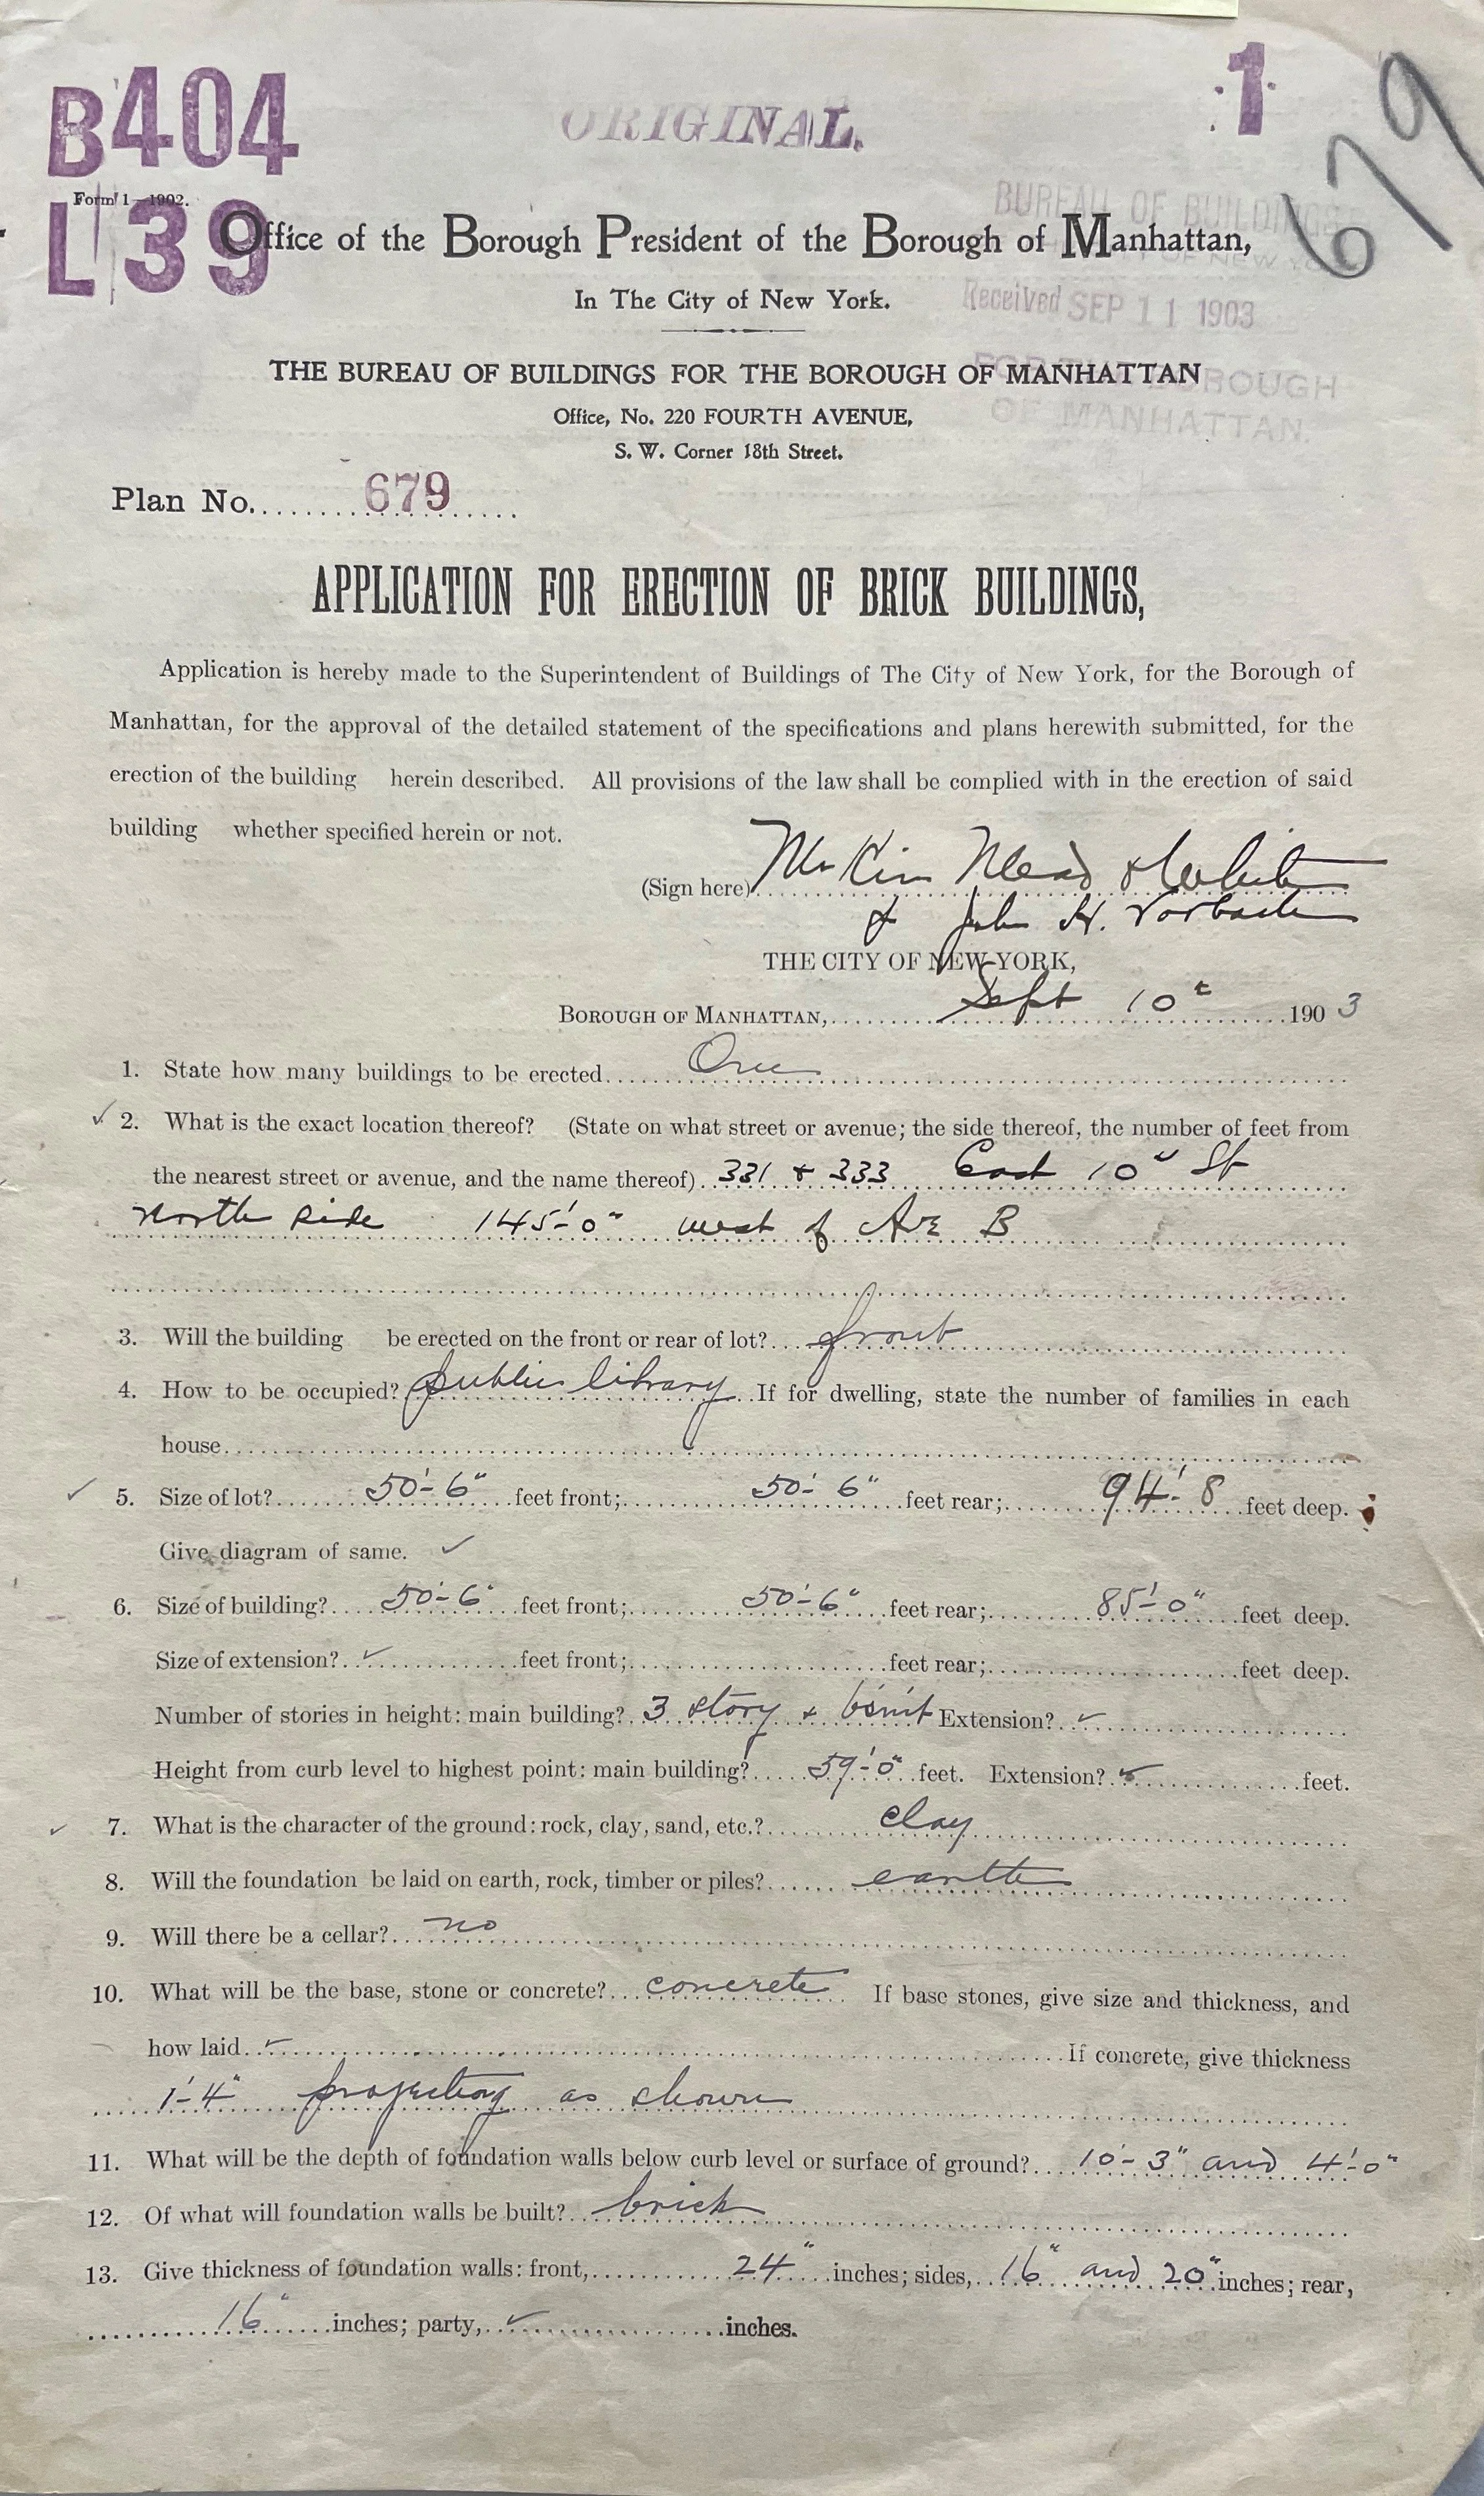 B404
ORIGINAL.
1
679
Form 1—1902.
L 39
BUREAU OF BUILDINGS
OF NEW YORK
Office of the Borough President of the Borough of Manhattan,
In The City of New York.
Received SEP 11 1903
THE BUREAU OF BUILDINGS FOR THE BOROUGH OF MANHATTAN
FOR THE BOROUGH
OF MANHATTAN.
Office, No. 220 FOURTH AVENUE,
S. W. Corner 18th Street.
Plan No. 679
APPLICATION FOR ERECTION OF BRICK BUILDINGS,
Application is hereby made to the Superintendent of Buildings of The City of New York, for the Borough of
Manhattan, for the approval of the detailed statement of the specifications and plans herewith submitted, for the
erection of the building herein described. All provisions of the law shall be complied with in the erection of said
building whether specified herein or not.
(Sign here) McKim Mead & White
& John H. Vorbach
THE CITY OF NEW YORK,
BOROUGH OF MANHATTAN, Sept 10t 1903
1. State how many buildings to be erected One
2. What is the exact location thereof? (State on what street or avenue; the side thereof, the number of feet from
the nearest street or avenue, and the name thereof) 331 & 333 East 10" St
north side 145'-0" west of Ave B
3. Will the building be erected on the front or rear of lot? front
4. How to be occupied? public library If for dwelling, state the number of families in each
house
5. Size of lot? 50'-6" feet front; 50'-6" feet rear; 94'-8 feet deep.
Give diagram of same. ✓
6. Size of building? 50'-6" feet front; 50'-6" feet rear; 85'-0" feet deep.
Size of extension? ✓ feet front; feet rear; feet deep.
Number of stories in height: main building? 3 story & bsmt Extension? ✓
Height from curb level to highest point: main building? 59'-0" feet. Extension? ✓ feet.
7. What is the character of the ground: rock, clay, sand, etc.? clay
8. Will the foundation be laid on earth, rock, timber or piles? earth
9. Will there be a cellar? no
10. What will be the base, stone or concrete? concrete If base stones, give size and thickness, and
how laid ✓ If concrete, give thickness
1'-4" projecting as shown
11. What will be the depth of foundation walls below curb level or surface of ground? 10'-3" and 4'-0"
12. Of what will foundation walls be built? brick
13. Give thickness of foundation walls: front, 24" inches; sides, 16" and 20" inches; rear,
16" inches; party, ✓ inches.